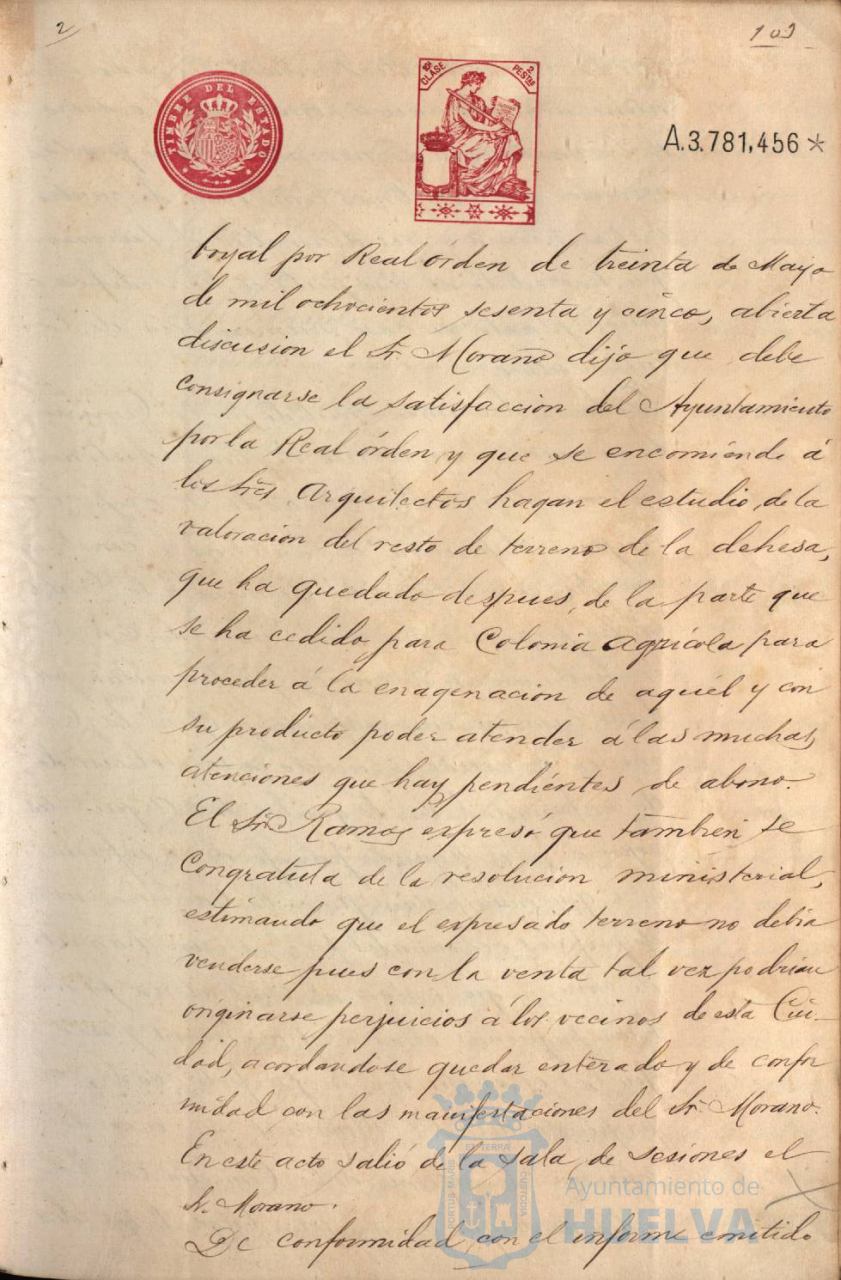 2
103
TIMBRE DEL ESTADO
10ª CLASE
2 PESTAS
A.3.781,456 *
boyal por Real órden de treinta de Mayo
de mil ochocientos sesenta y cinco, abierta
discusion el Sr Morano dijo que debe
consignarse la satisfaccion del Ayuntamiento
por la Real órden y que se encomiende á
los Sres Arquitectos hagan el estudio, de la
valoracion del resto de terreno de la dehesa,
que ha quedado despues, de la parte que
se ha cedido para Colonia Agrícola para
proceder á la enagenacion de aquel y con
su producto poder atender á las muchas
atenciones que hay pendientes de abono.
El Sr. Ramos expresó que tambien se
congratula de la resolucion ministerial,
estimando que el expresado terreno no debia
venderse pues con la venta tal vez podrian
originarse perjuicios á los vecinos de esta Ciu-
dad, acordandose quedar enterado y de confor
midad con las manifestaciones del Sr. Morano.
En este acto salió de la sala de sesiones el
Sr. Morano.
De conformidad con el informe emitido
PORTUS MARIS
ET TERRÆ
CUSTODIA
Ayuntamiento de
HUELVA